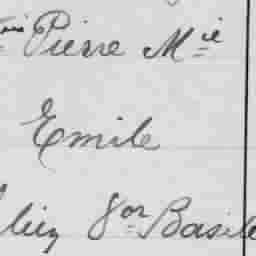 Pierre Mie
Emile
8or Basile